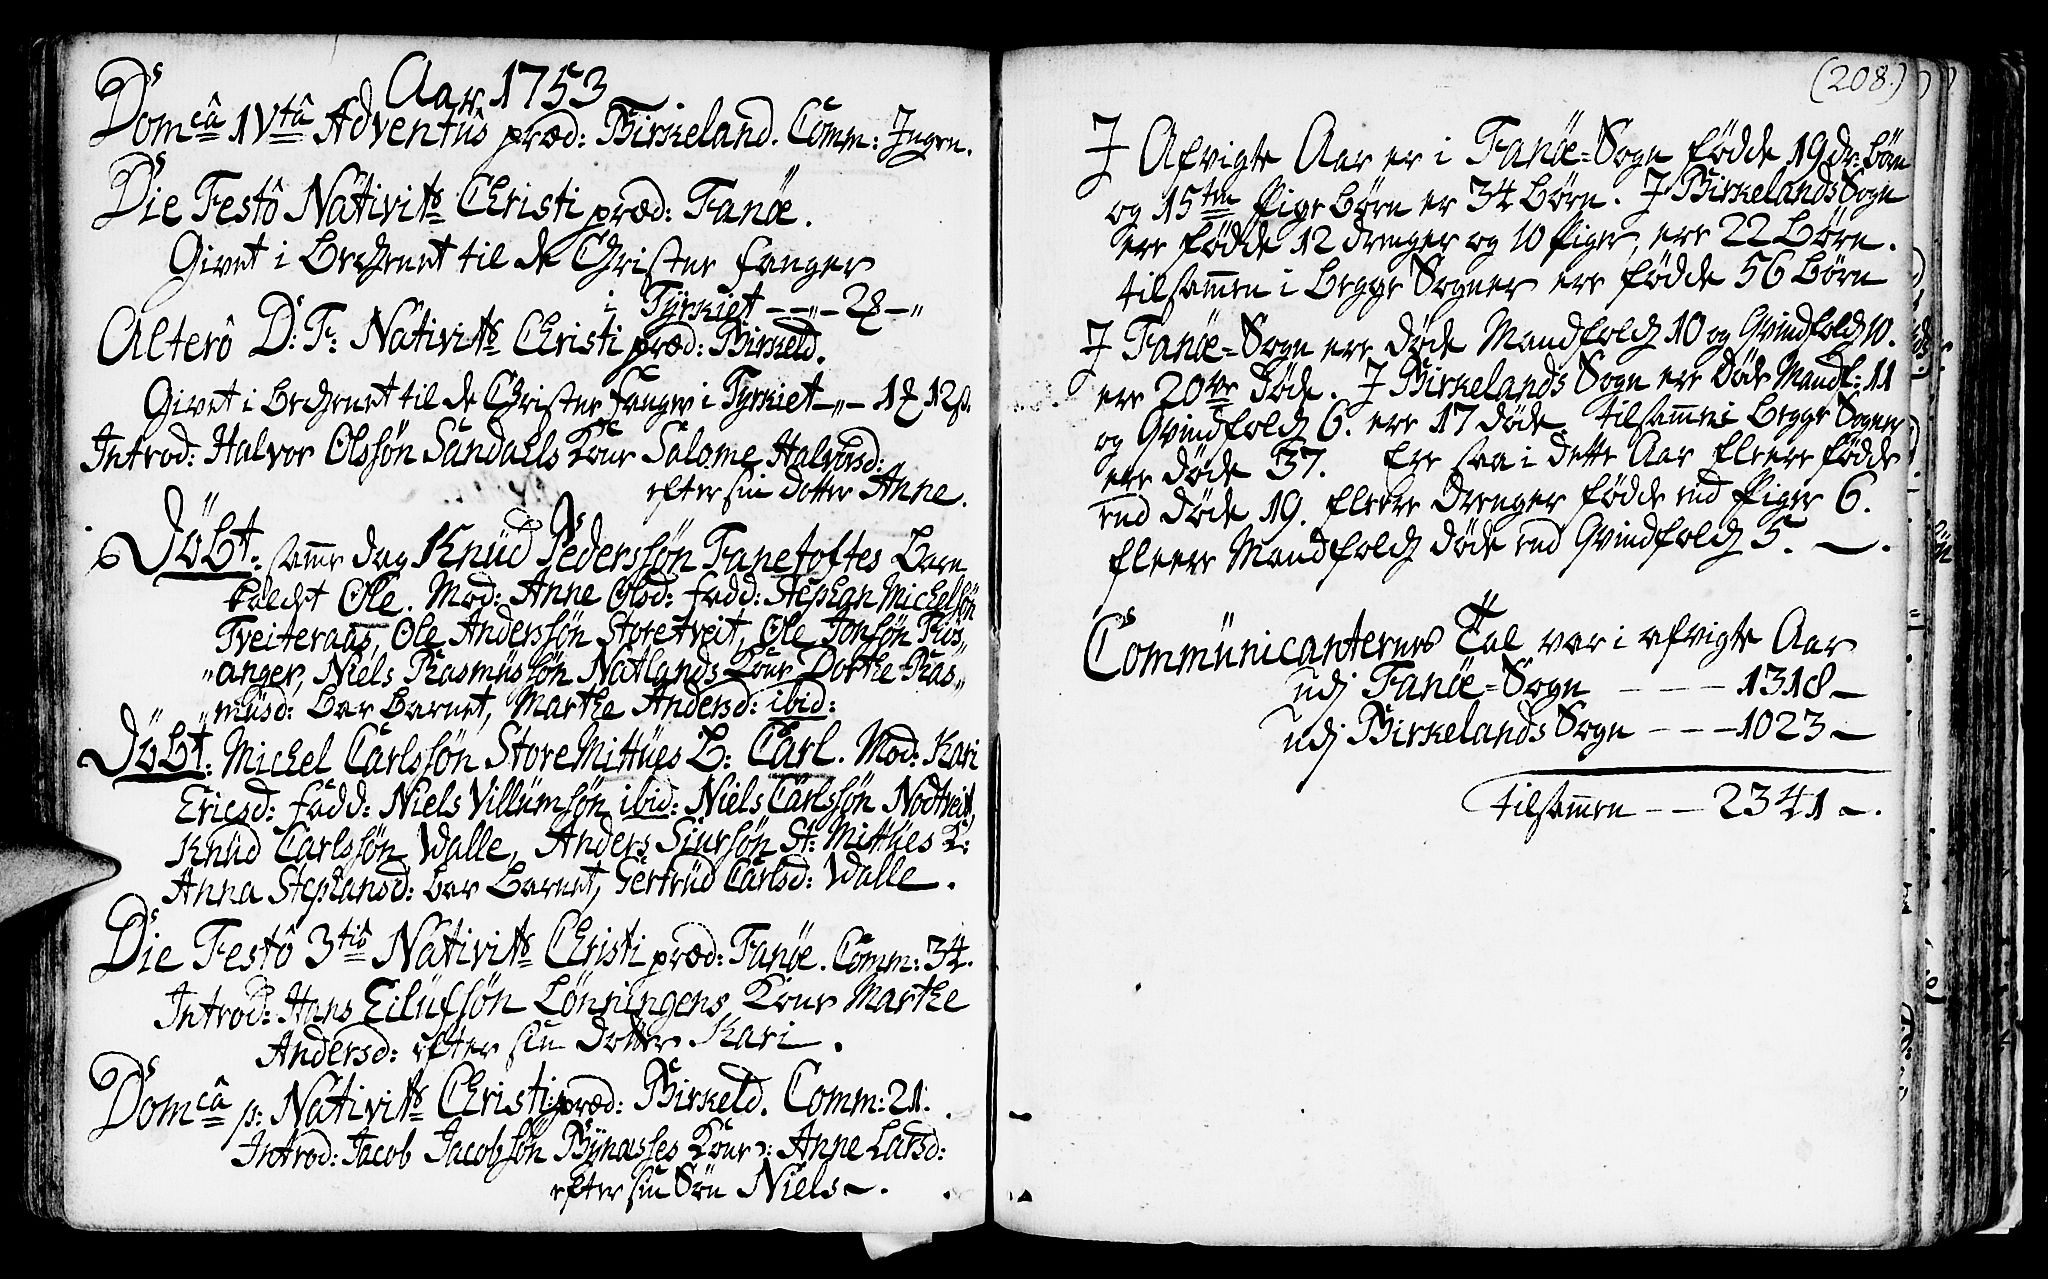 Aar 1753
Domcâ IVtâ Adventûs præd: Birkeland. Comm: Ingen.
Die Festô Nativits Christi præd: Fanöe.
Givet i Bechenet til de Christne fanger
i Tyrkiet - - " - 28 - "
Alterô D: F: Nativits Christi præd: Birkeld.
Givet i Bechenet til de Christne fanger i Tyrkiet - " - 1 12s.
Introd: Halvor Olssøn Sandalls Kone Salome Halvorsd:
efter sin dotter Anne.
Döbt: samme dag Knud Pederssøn Fanetoftes Barn
kaldet Ole. Mod: Anne Olsd: fadd: Stephan Michelsøn
Tveiteraas, Ole Anderssøn Storetveit, Ole Jonsøn Ris„
„anger, Niels Rasmussøn Natlands Kone Dorthe Ras„
musd: bar barnet, Marthe Andersd: ibid:
Döbt: Michel Carlssøn StoreMittües B: Carl. Mod: Kari
Ericsd: fadd: Niels Villumsøn ibid: Niels Carlssøn Nodtveit,
Knud Carlssøn Walle, Anders Siursøn St: Mittües K:
Anna Stephansd: bar barnet, Gertrud Carlsd: Walle.
Die Festô 3tiô Nativits Christi præd: Fanöe. Comm: 34.
Introd: Hans Eilufsøn Lønningens Kone Marthe
Andersd: efter sin dotter Kari.
Domcâ p: Nativits Christi præd: Birkeld. Comm: 21.
Introd: Jacob Jacobsøn Bynæsses Kone: Anne Larsd:
efter sin Søn Niels -.
(208.)
I Afvigte Aar er i Fanöe-Sogn fødde 19 dr: børn
og 15ten Pige børn er 34 børn. I Birkelands Sogn
ere fødde 12 drenger og 10 Piger, ere 22 børn.
tilsammen i begge Sogner ere fødde 56 børn
I Fanöe-Sogn ere døde Mandfolch 10 og Qvindfolch 10.
ere 20ve døde. I Birkelands Sogn ere døde Mandf: 11
og Qvindfolch 6. ere 17 døde. tilsammen i begge Sogner
ere døde 37. Ere saa i dette Aar fleere fødde
end døde 19. fleere drenger fødde end Piger 6.
fleere Mandfolch døde end Qvindfolch 5. -.
Communicanternes Tal var i afvigte Aar
udj Fanöe-Sogn - - - - 1318 -
udj Birkelands Sogn - - - 1023 -
tilsammen - - 2341 -.